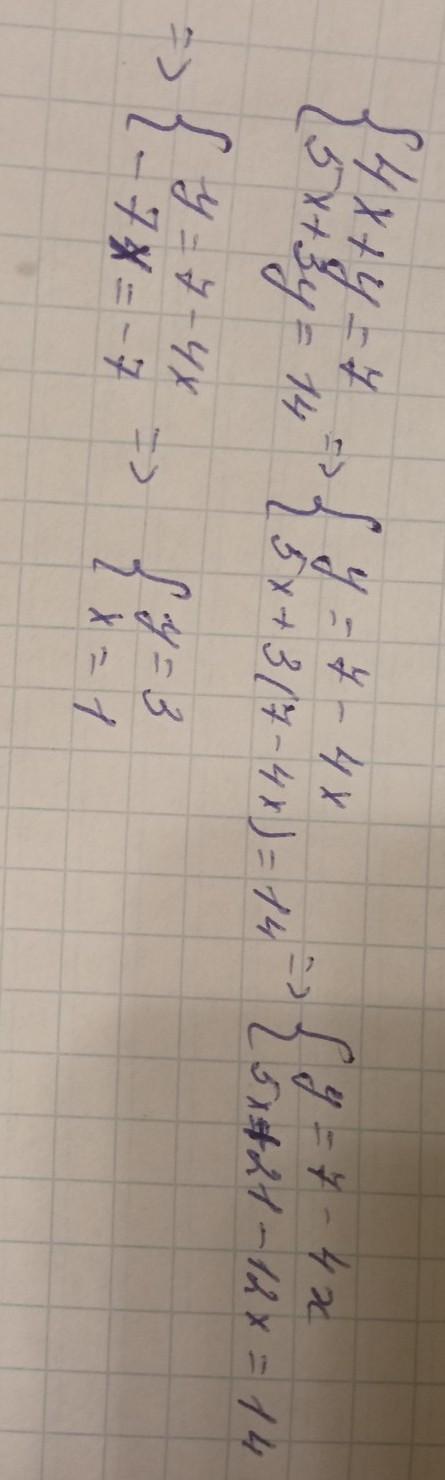 { 4x + y = 7
5x + 3y = 14 => { y = 7 - 4x
5x + 3(7 - 4x) = 14 => { y = 7 - 4x
5x + 21 - 12x = 14
=> { y = 7 - 4x
-7x = -7 => { y = 3
x = 1